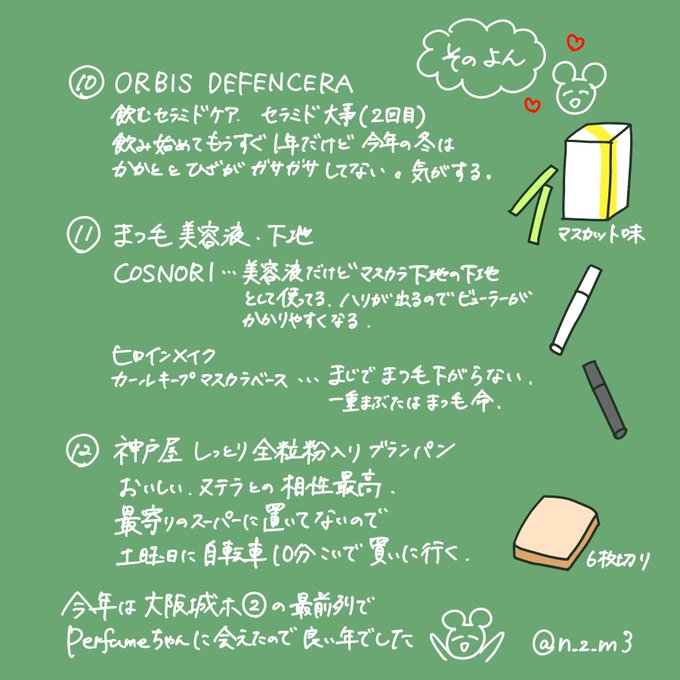 そのよん
⑩ ORBIS DEFENCERA
飲むセラミドケア. セラミド大事(2回目)
飲み始めてもうすぐ1年だけど 今年の冬は
かかととひざがガサガサしてない。気がする。
マスカット味
⑪ まつ毛美容液、下地
COSNORI … 美容液だけどマスカラ下地の下地
として使ってる. ハリが出るのでビューラーが
かかりやすくなる.
ヒロインメイク
カールキープマスカラベース … まじでまつ毛下がらない.
一重まぶたはまつ毛命.
⑫ 神戸屋 しっとり全粒粉入りブランパン
おいしい. ヌテラとの相性最高.
最寄りのスーパーに置いてないので
土曜日に自転車10分こいで買いに行く.
6枚切り
今年は大阪城ホ②の最前列で
Perfumeちゃんに会えたので良い年でした
@n_z_m3